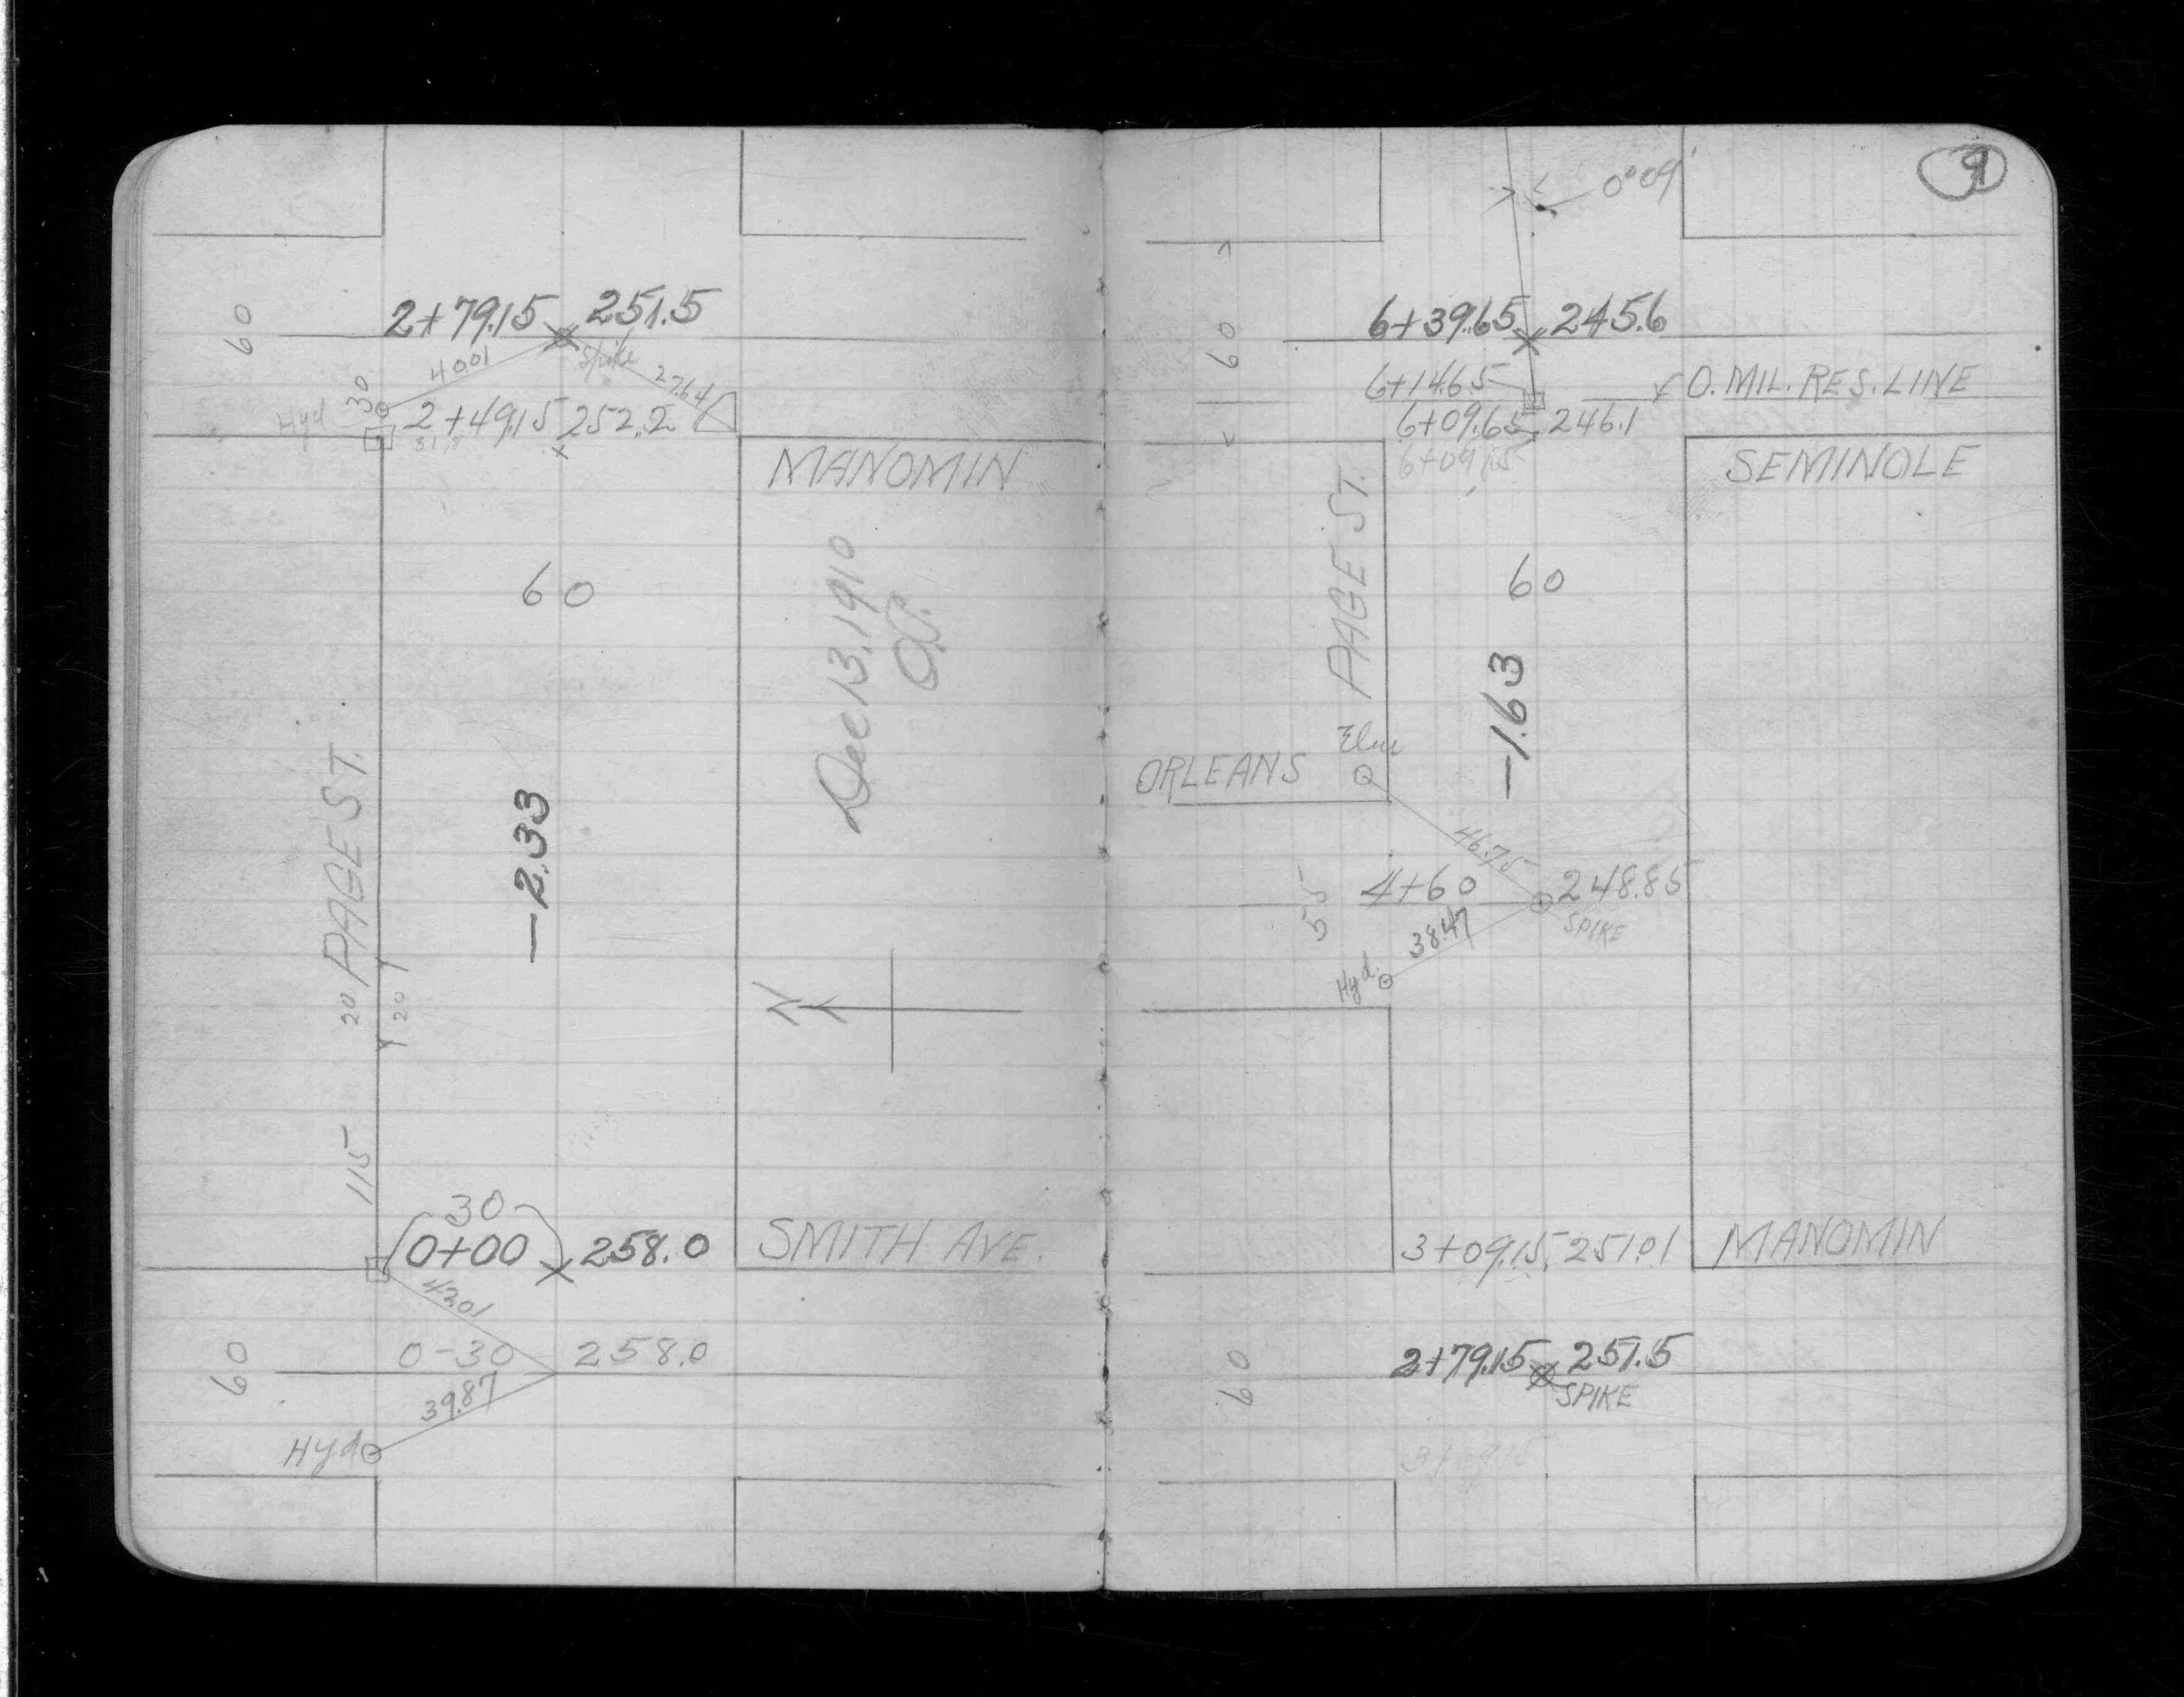 2+79.15 251.5
60
40.01
Spike
27.64
30
Hyd
2+49.15 252.2
51.8
MANOMIN
60
Dec 13, 1910
PAGE ST.
-2.33
20
20
N
115
30
0+00 258.0
SMITH AVE.
42.01
60
0-30 258.0
39.87
Hyd
9
0°09'
6+39.65 245.6
60
6+14.65
O. MIL. RES. LINE
6+09.65 246.1
6+09.15
SEMINOLE
PAGE ST.
60
-1.63
Elm
ORLEANS
46.75
55
4+60 248.85
SPIKE
38.47
Hyd.
3+09.15 251.01
MANOMIN
60
2+79.15 251.5
SPIKE
3+09.15